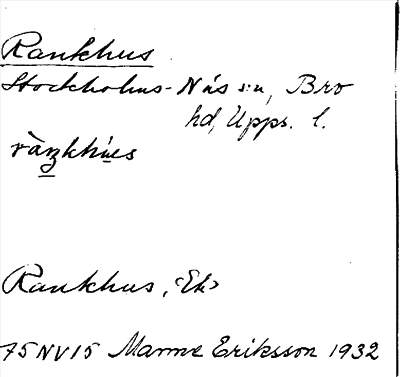 Rankhus
Stockholms-Näs s:n, Bro
hd, Upps. l.
Rankhus, <Ek>
75NV15 Manne Eriksson 1932